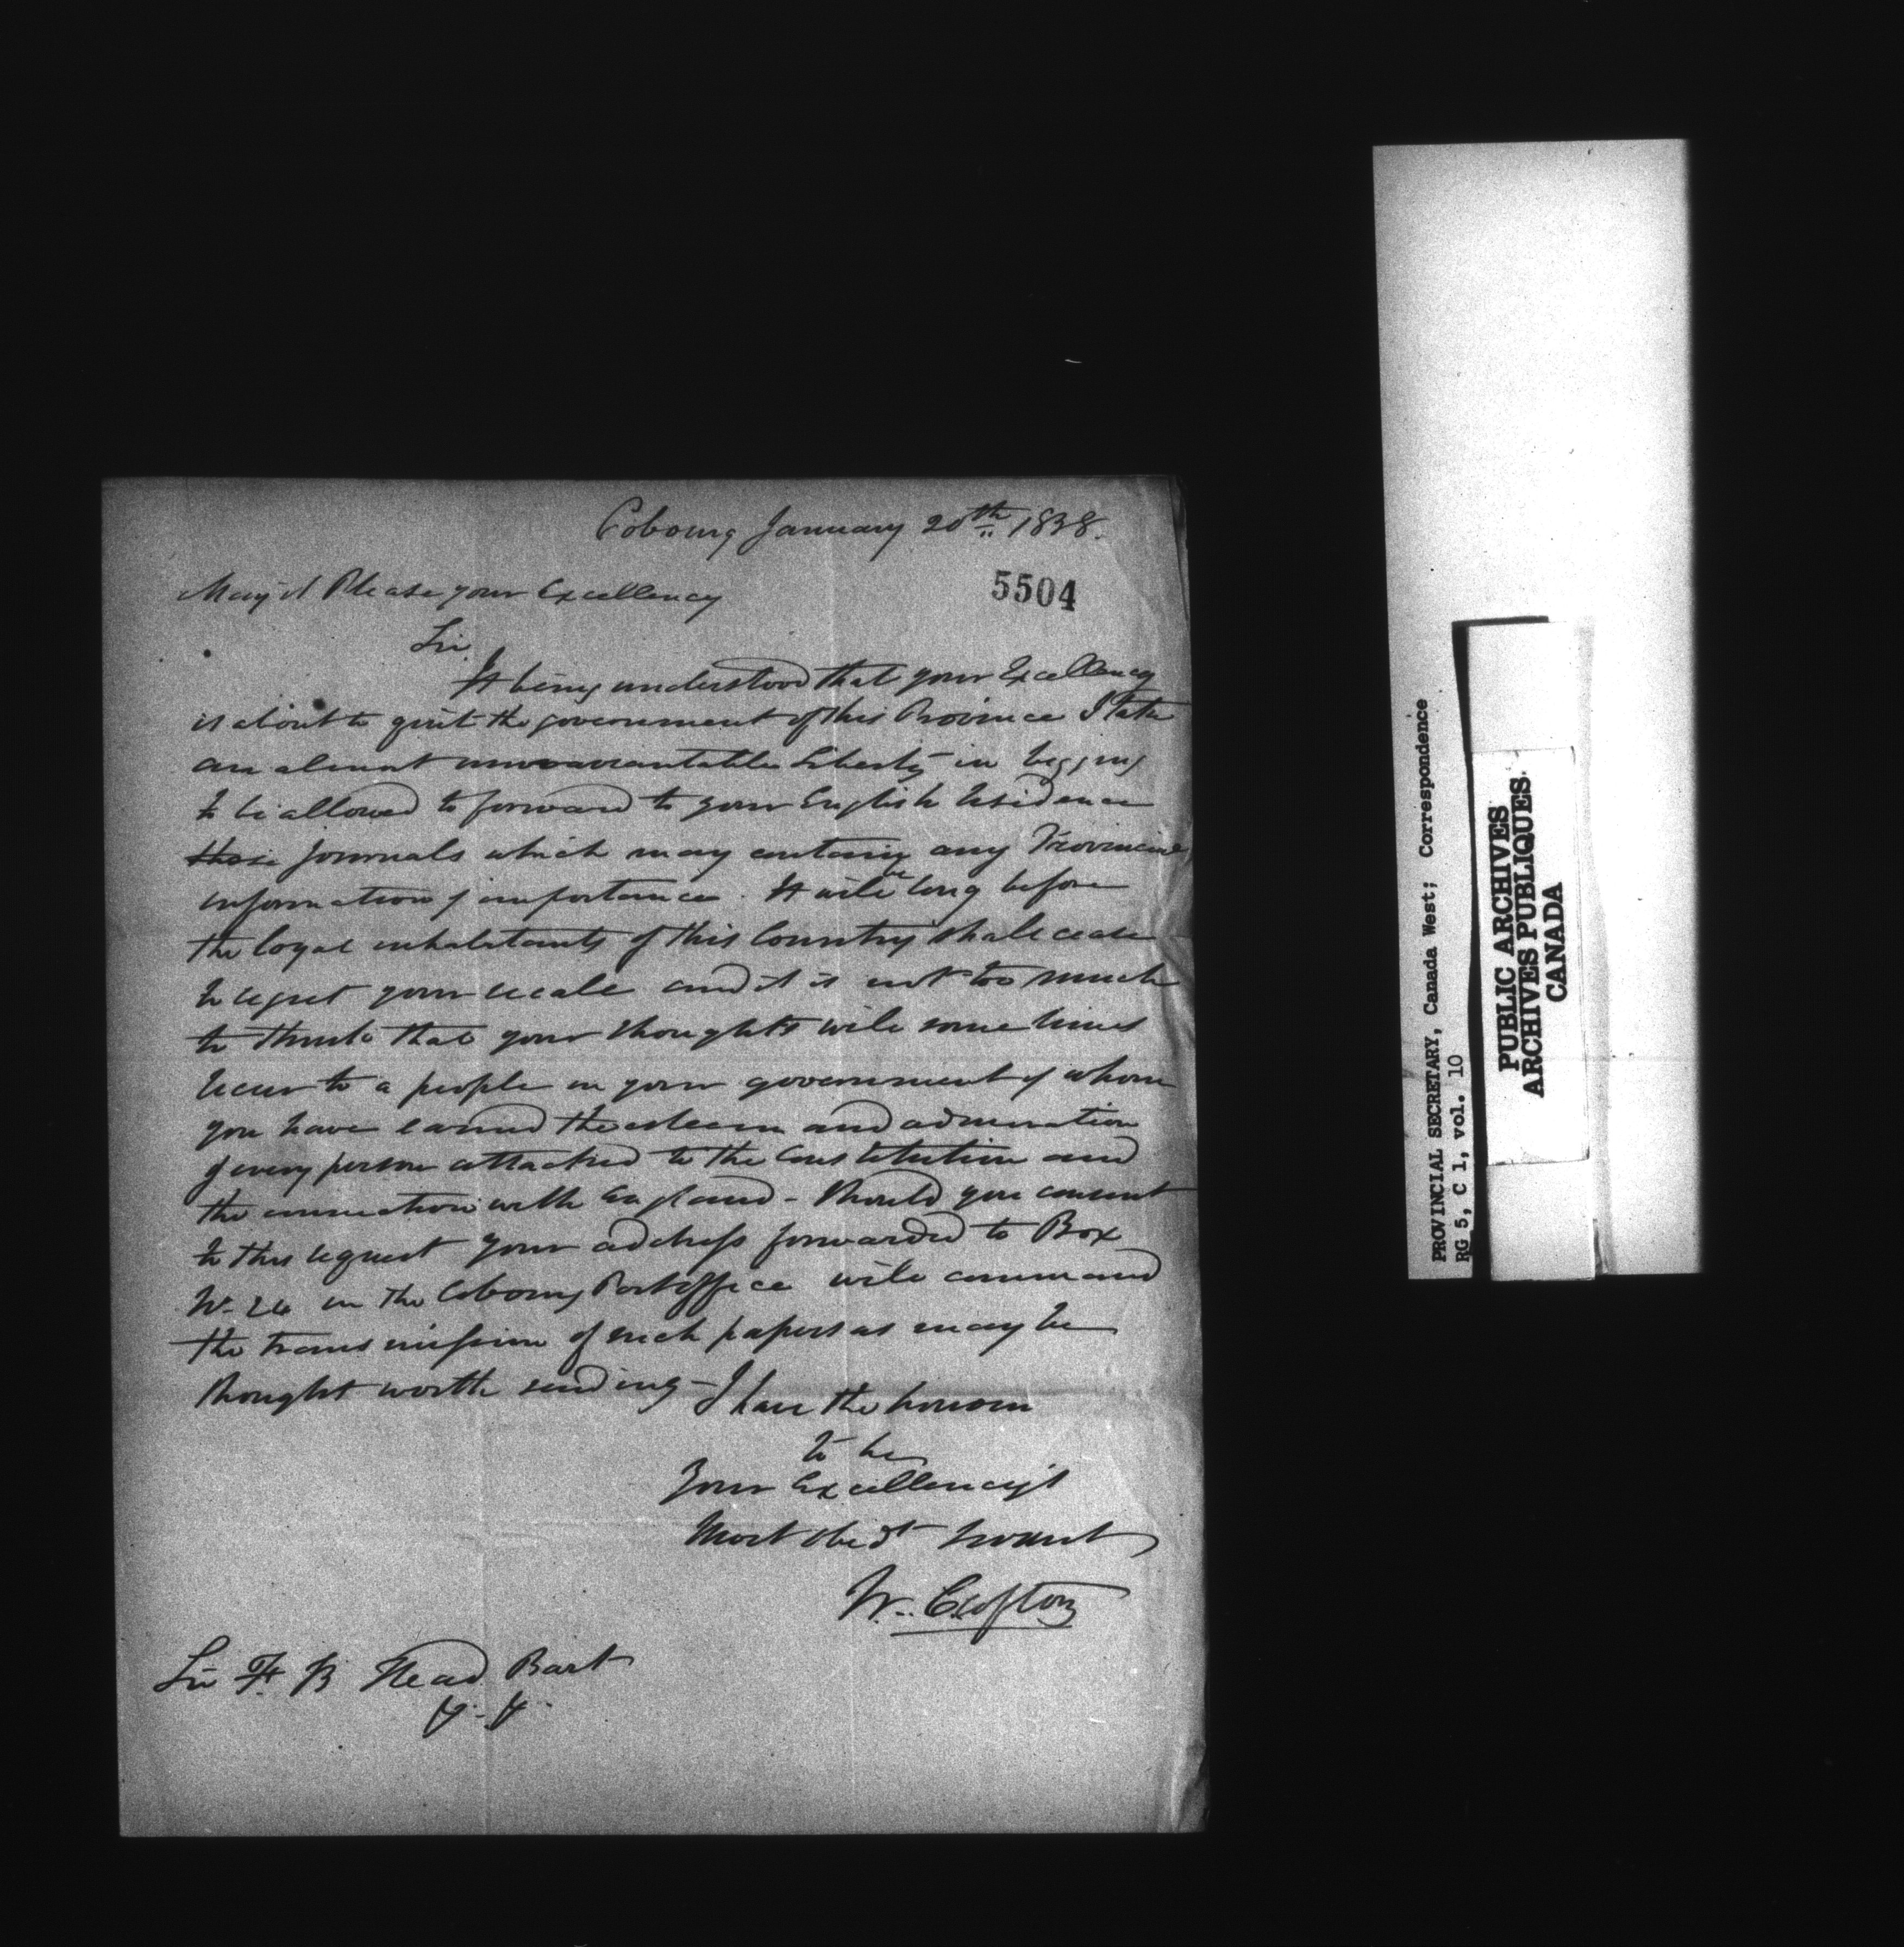 Cobourg January 20th 1838.
5504
May it Please your Excellency
Sir
It being understood that your Excellency
is about to quit the government of this Province I take
an almost unwarrantable Liberty in begging
to be allowed to forward to your English Residence
those journals which may contain any Provincial
information of importance. It will be long before
the loyal inhabitants of this Country shall cease
to regret your recall and it is not too much
to think that your thoughts will some times
recur to a people in your government of whom
you have earned the esteem and admiration
of every person attached to the Constitution and
the connection with England - Should you consent
to this request your address forwarded to Box
in the Cobourg Post Office will command
the transmission of such papers as may be
thought worth sending - I have the honour
to be
Your Excellency's
Most Obedt Servant
W. Crofton
Sir F. B Head Bart
PROVINCIAL SECRETARY, Canada West; Correspondence
RG 5, C 1, vol. 10
PUBLIC ARCHIVES
ARCHIVES PUBLIQUES
CANADA